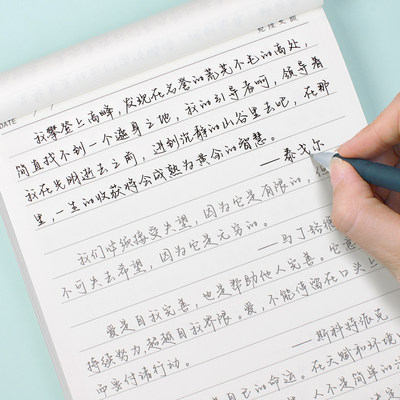 DATE
我攀登上高峰，发现在名誉的荒芜不毛的高处，
简直找不到一个遮身之地，我的引导者啊，领导着
我在光明逝去之前，进到沉静的山谷里去吧，在那
里，一生的收获将会成熟为黄金的智慧。
——泰戈尔
我们必须接受失望，因为它是有限的，但
不可失去希望，因为它是无穷的。
——马丁路德
爱是自我完善，也是帮助他人完善。它意
持续努力，超越自我界限。爱，不能停留在口头上
而要付诸行动。
——斯科特派克
自己的命运。在天赋和环境
人不是简单的活